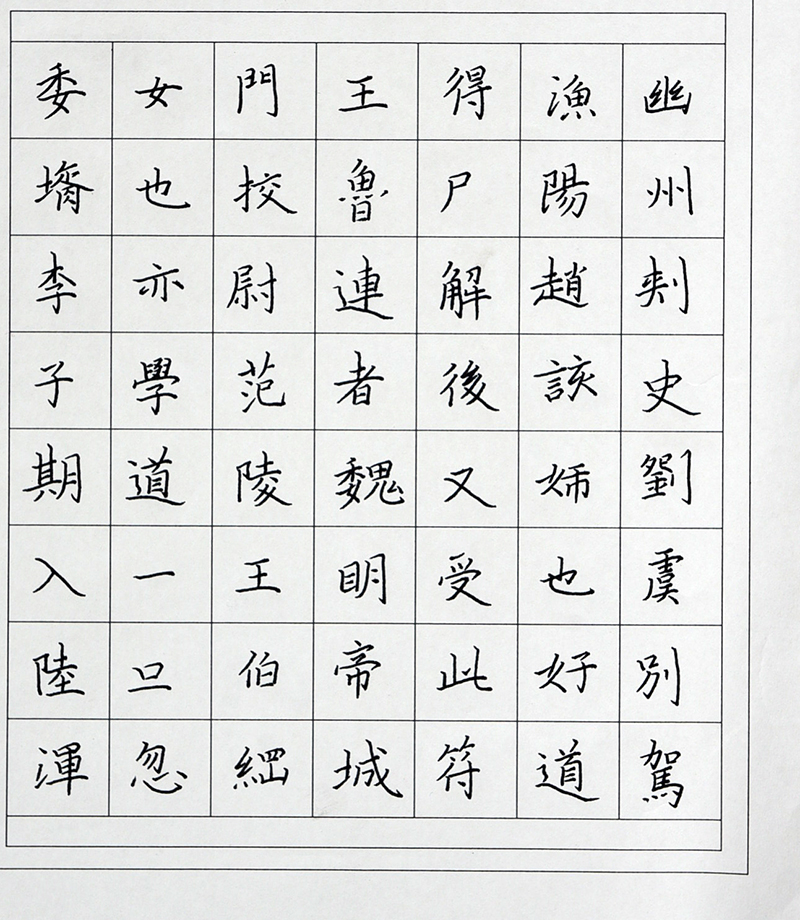 幽州刾史劉虞別駕
漁陽趙該姉也好道
得尸解後又受此符
王魯連者魏眀帝城
門挍尉范陵王伯綱
女也亦學道一旦忽
委壻李子期入陸渾